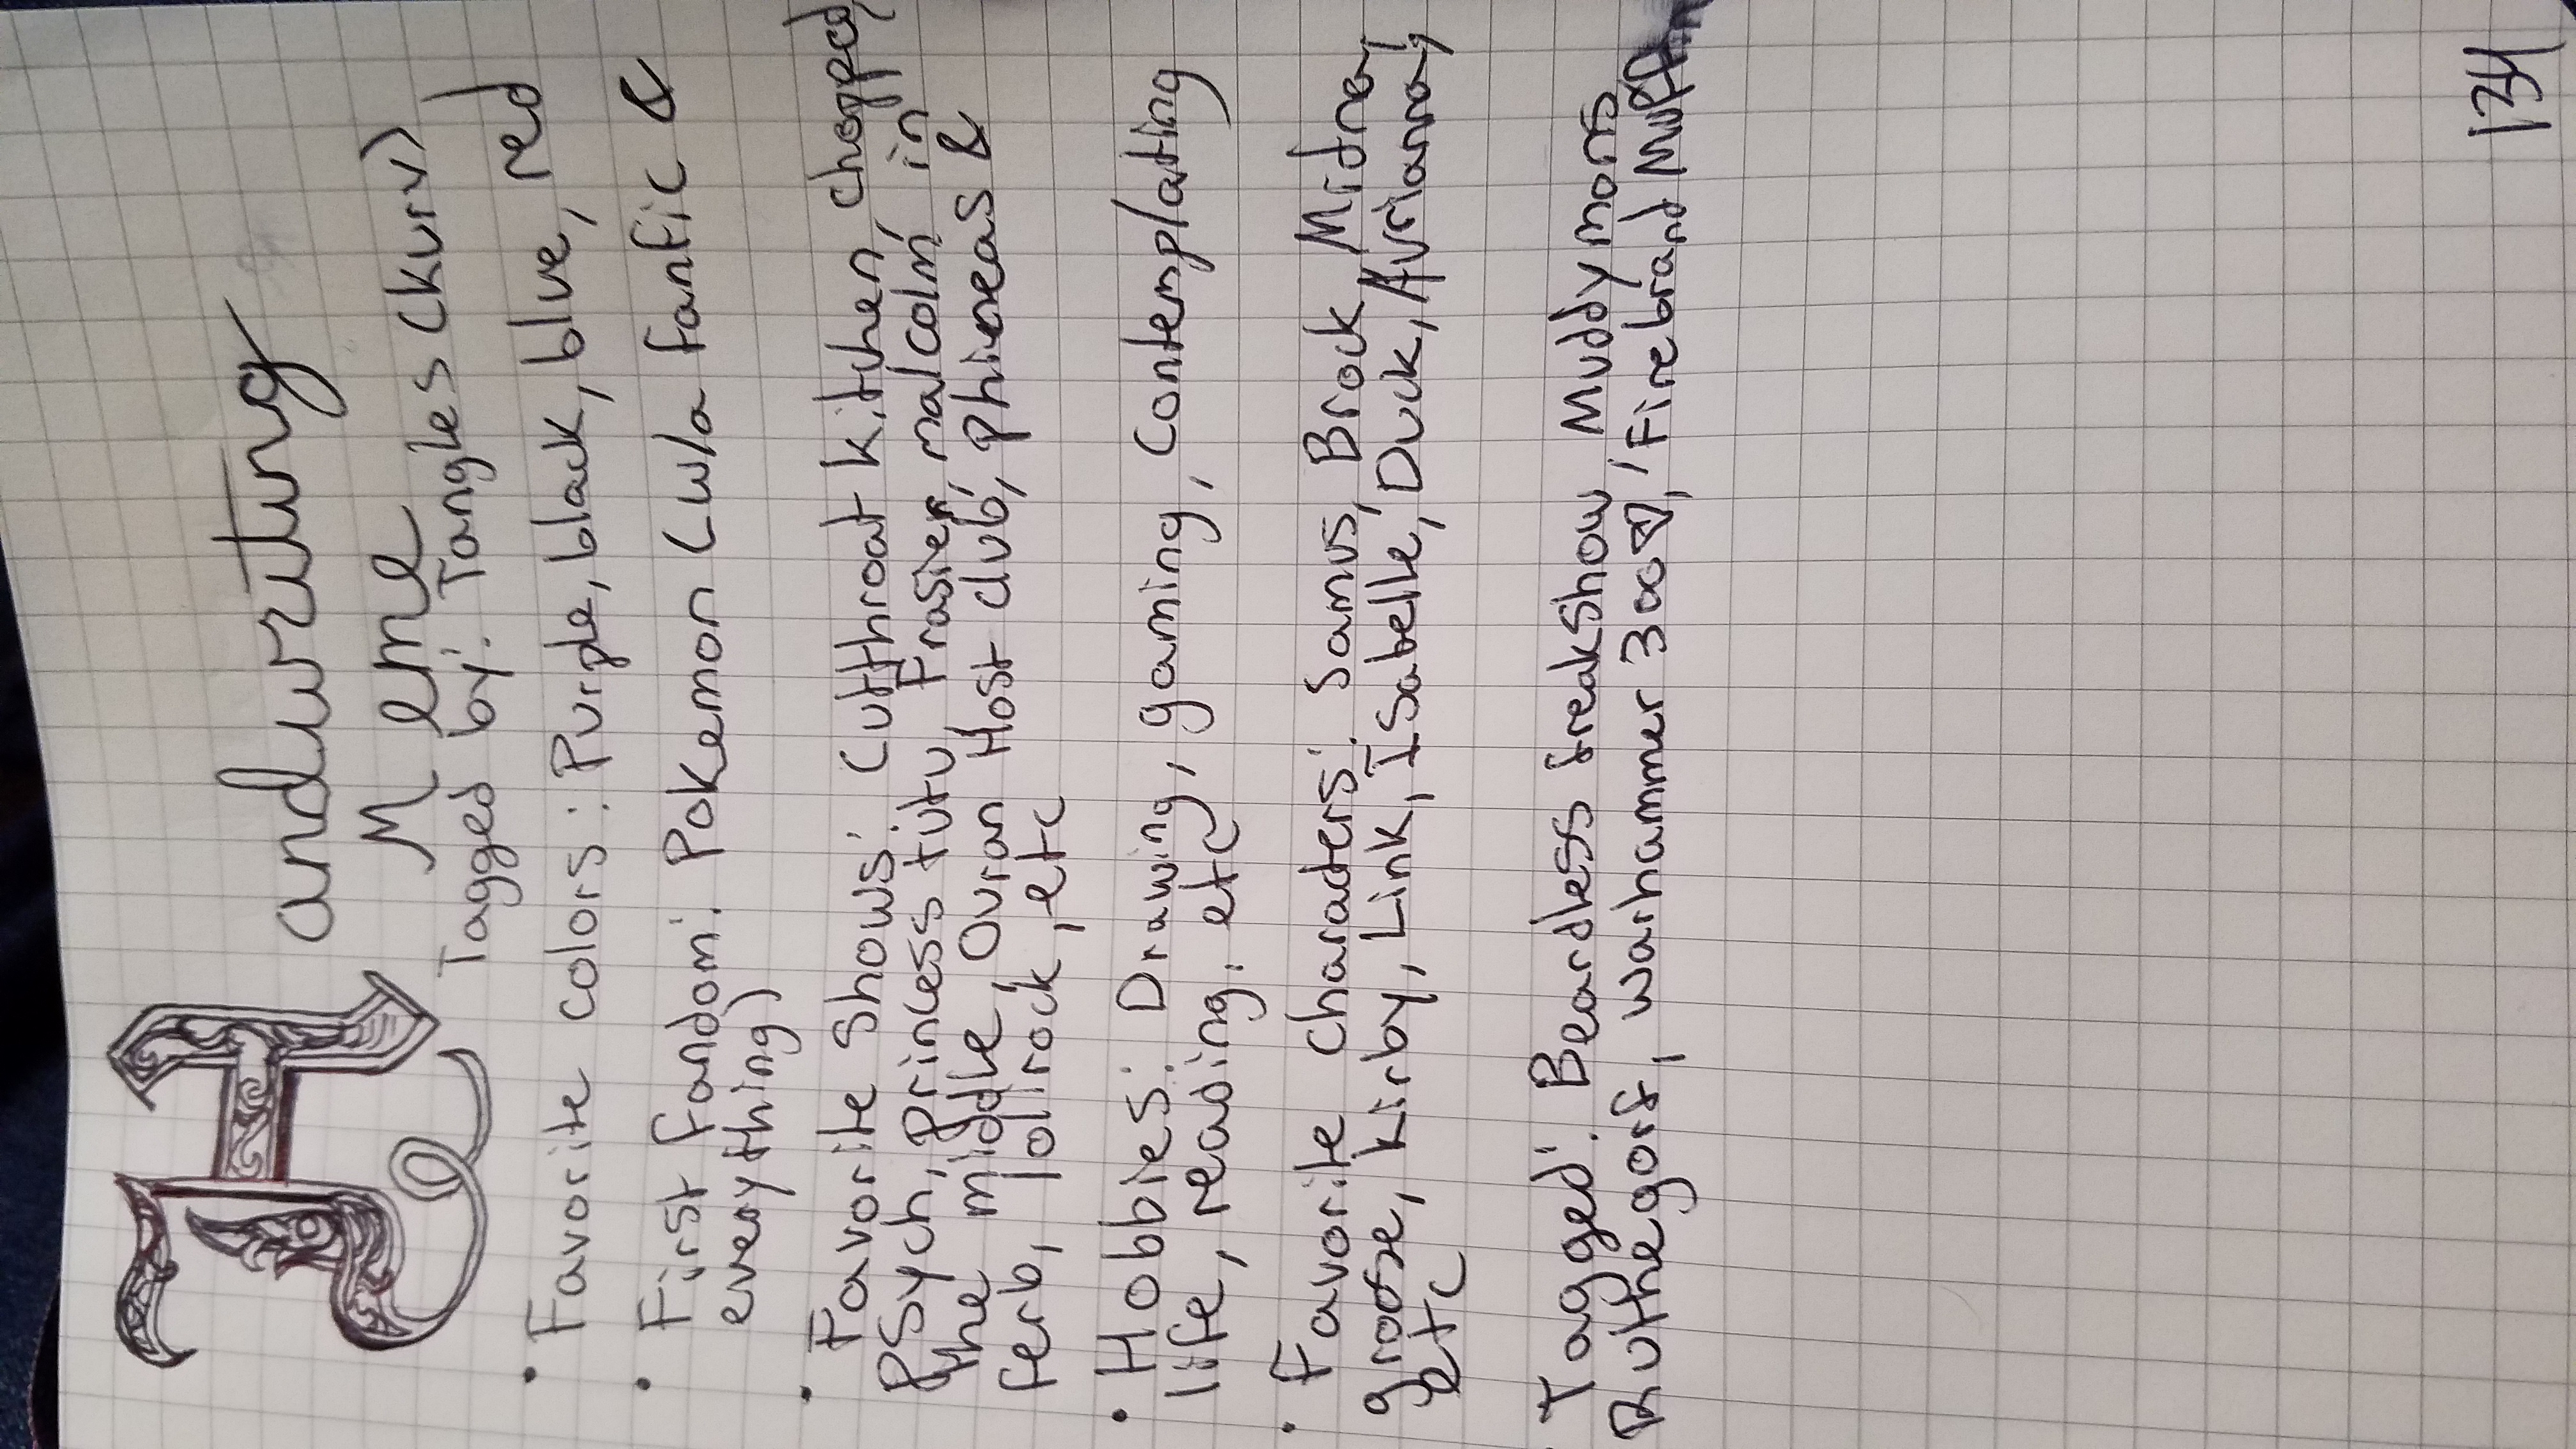 Handwriting
Meme
Tagged by: Tangles (kuru)
• Favorite colors: Purple, black, blue, red
• First Fandom: Pokemon (w/a fanfic &
everything)
• Favorite shows: Cutthroat kithen, chopped,
Psych, Princess tutu, Frasier, malcolm in
the middle, Ouran Host club, phineas &
ferb, lolirock, etc
• Hobbies: Drawing, gaming, contemplating
life, reading, etc
• Favorite Characters: Samus, Brock, Midna,
groose, Kirby, Link, Isabelle, Duck, Avrianna,
etc
• Tagged: Beardless freakshow, Muddymons,
Ruthegorf, warhammer 300, Firebrand
134